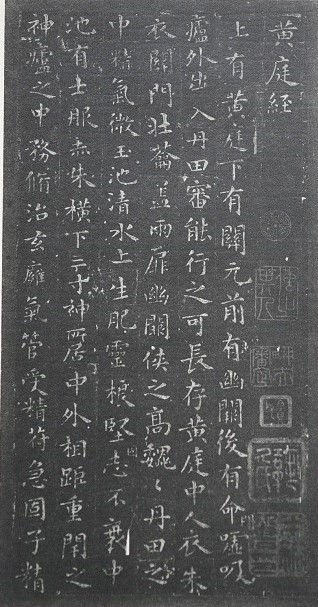 黃庭經
上有黃庭下有關元前有幽關後有命噓吸
廬外出入丹田審能行之可長存黃庭中人衣朱
衣關門壯蘥蓋兩扉幽關俠之高魏〻丹田之
中精氣微玉池清水上生肥靈根堅志不衰中
池有士服赤朱橫下三寸神所居中外相距重閉之
神廬之中務脩治玄㢕氣管受精符急固子精